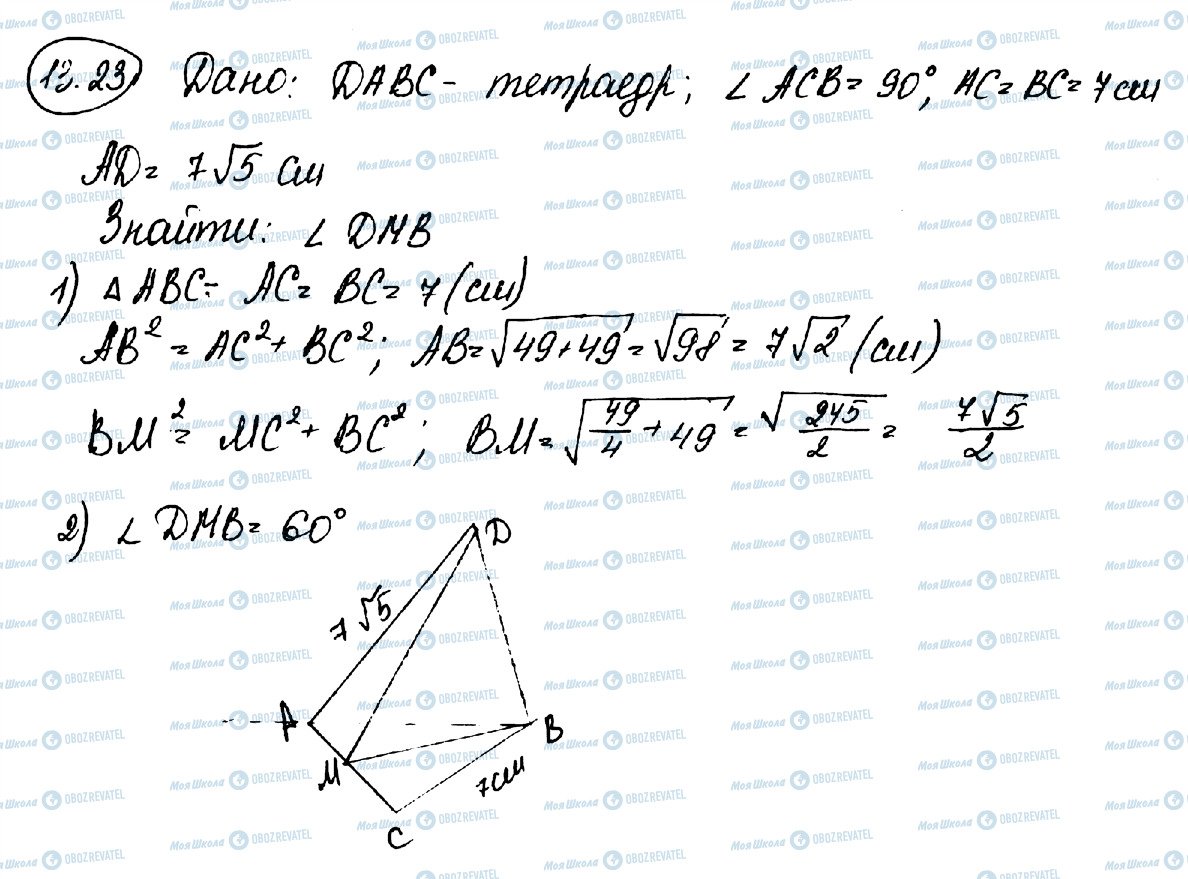 13.23 Дано: DABC - тетраедр; ∠ ACB = 90°, AC = BC = 7 см
AD = 7√5 см
Знайти: ∠ DMB
1) △ ABC: AC = BC = 7 (см)
AB² = AC² + BC²; AB = √(49+49) = √98 = 7√2 (см)
BM² = MC² + BC²; BM = √(49/4 + 49) = √(245/2) = 7√5/2
2) ∠ DMB = 60°
D
7√5
A
B
M
7см
C
Моя Школа OBOZREVATEL